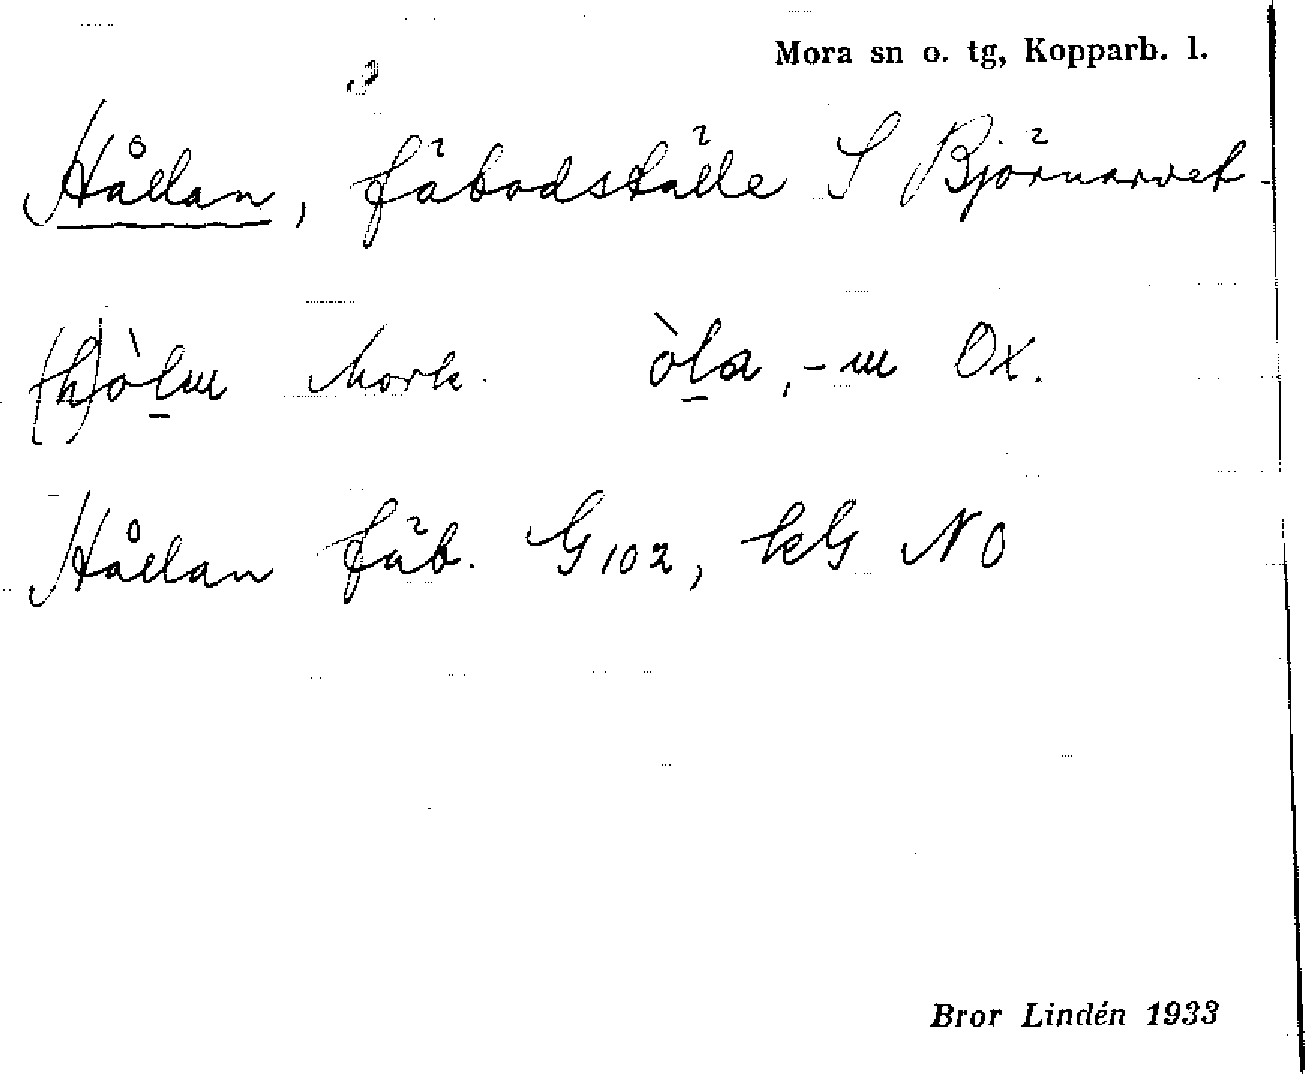 Mora sn o. tg, Kopparb. l.
Hållan, fäbodställe S Björnarvet
(h)òlm Mork. òla, -m Ox.
Hållan fäb. G 102, kG NO
Bror Lindén 1933